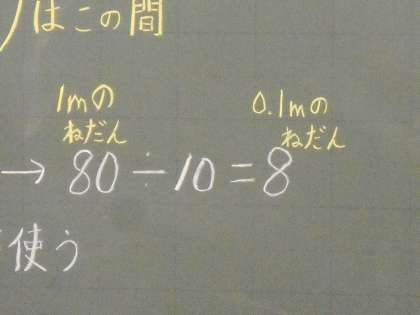 はこの間
1mの 0.1mの
ねだん ねだん
→80÷10=8
使う